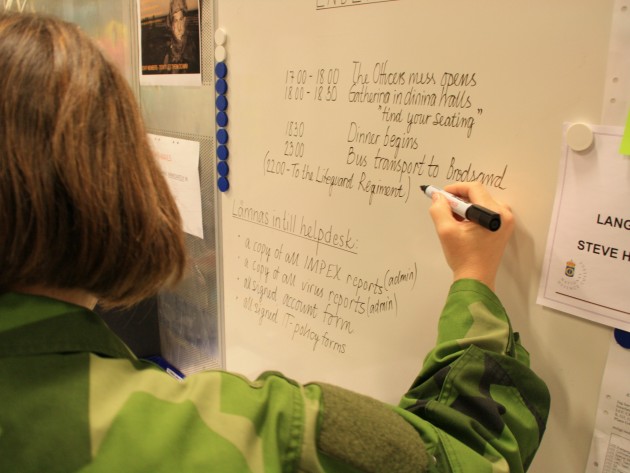 17 00 - 18.00 The Officers mess opens
18.00 - 18 30 Gathering in dining halls
"find your seating"
18 30 Dinner begins
23.00 Bus transport to Brodsand
(22.00 - To the Lifeguard Regiment)
Lämnas in till helpdesk:
• a copy of all IMPEX reports (admin)
• a copy of all virus reports (admin)
• all signed account form
• all signed IT-policy forms
LANG
STEVE H